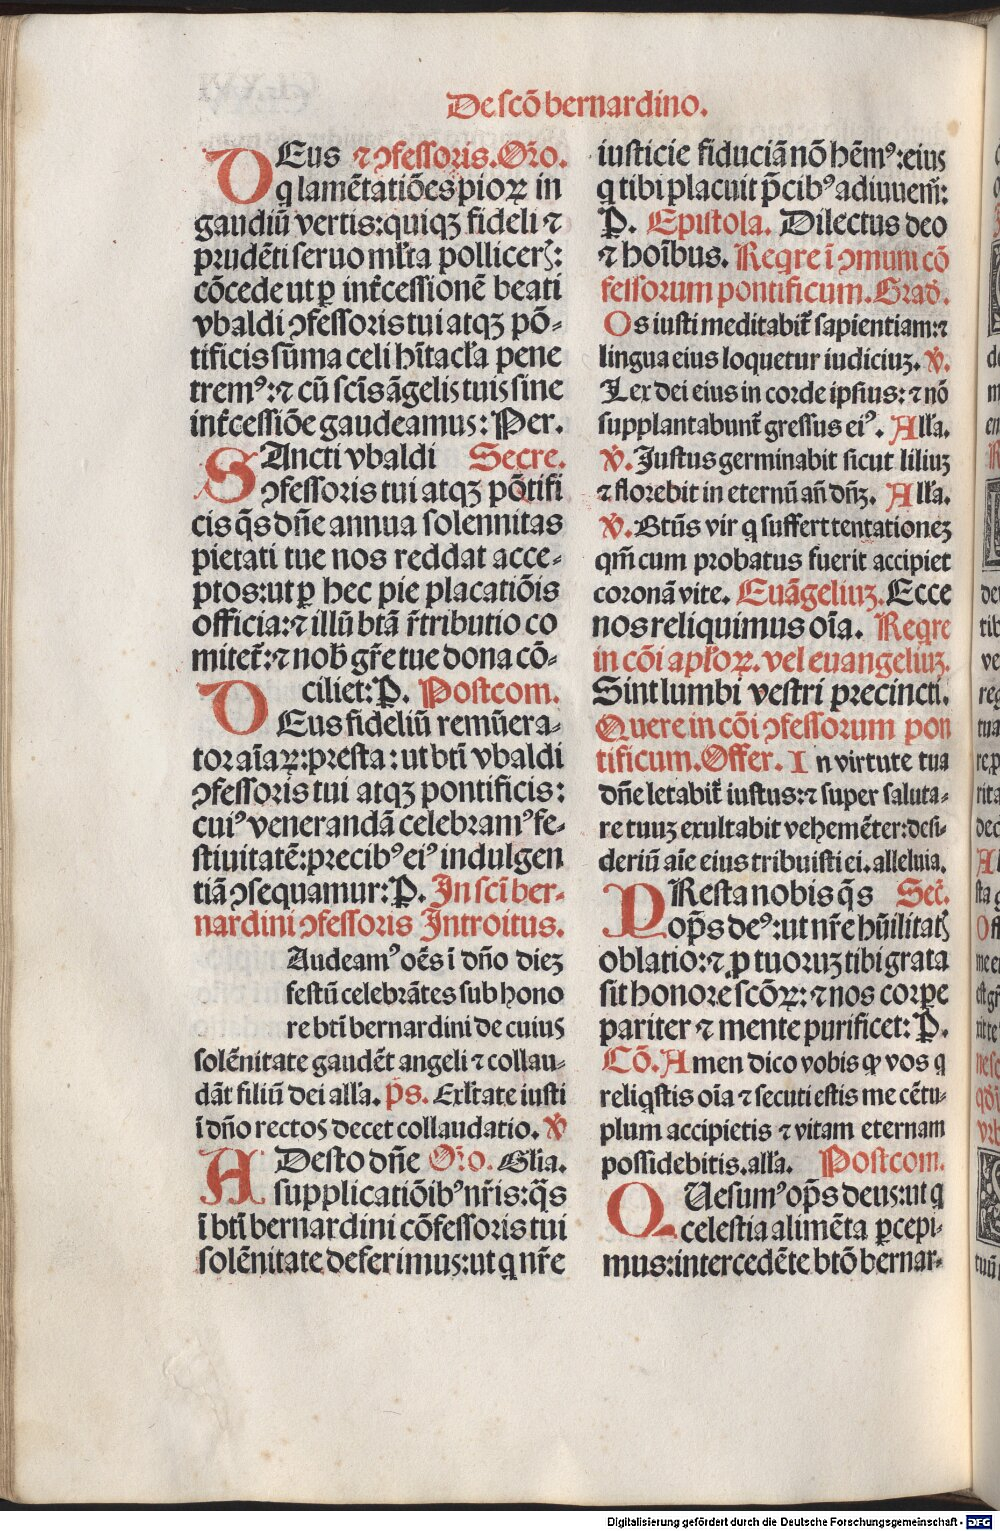 De scō bernardino.
DEus ⁊ ꝯfessoris. Orō.
q lamētatiōes pioꝝ in
gaudiū vertis: quiqꝫ fideli ⁊
prudēti seruo mľta pollicerꝭ:
cōcede ut ꝑ int̄cessionē beati
vbaldi ꝯfessoris tui atqꝫ pō-
tificis sūma celi hītacľa pene
tremꝰ: ⁊ cū scīs āgelis tuis sine
int̄cessiōe gaudeamus: Per.
SAncti vbaldi Secre.
ꝯfessoris tui atqꝫ pōtifi
cis q̄s dn̄e annua solennitas
pietati tue nos reddat acce-
ptos: ut ꝑ hec pie placatiōis
officia: ⁊ illū btā r̄tributio co
mitet̄: ⁊ nob̄ gr̄e tue dona cō-
ciliet: P. Postcom.
DEus fideliū remūera-
tor aīaꝝ: presta: ut btī vbaldi
ꝯfessoris tui atqꝫ pontificis:
cuiꝰ venerandā celebramꝰ fe-
stiuitatē: precibꝰ eiꝰ indulgen
tiā ꝯsequamur: P. In scī ber-
nardini ꝯfessoris Introitus.
Audeamꝰ oēs ī dn̄o diez
festū celebrātes sub hono
re btī bernardini de cuius
solēnitate gaudēt angeli ⁊ collau-
dāt filiū dei all'a. ps. Exľtate iusti
ī dn̄o rectos decet collaudatio. ℣
ADesto dn̄e Orō. Glia.
supplicatiōibꝰ nr̄is: q̄s
ī btī bernardini cōfessoris tui
solēnitate deferimus: ut q nr̄e
iusticie fiduciā nō hēmꝰ: eius
q tibi placuit p̄cibꝰ adiuuem̄:
P. Epistola. Dilectus deo
⁊ hoībus. Reqre ī ꝯmuni cō
fessorum pontificum. Grad.
Os iusti meditabit̄ sapientiam: ⁊
lingua eius loquetur iudiciuꝫ. ℣.
Lex dei eius in corde ipsius: ⁊ nō
supplantabunt̄ gressus eiꝰ. All'a.
℣. Justus germinabit sicut liliuꝫ
⁊ florebit in eternū an̄ dn̄ꝫ. All'a.
℣. Btūs vir q suffert tentationeꝫ
qm̄ cum probatus fuerit accipiet
coronā vite. Euāgeliuꝫ. Ecce
nos reliquimus oīa. Reqre
in cōi apľoꝝ. vel euangeliuꝫ.
Sint lumbi vestri precincti.
Quere in cōi ꝯfessorum pon
tificum. Offer. In virtute tua
dn̄e letabit̄ iustus: ⁊ super saluta-
re tuuꝫ exultabit vehemēter: desi-
deriū aīe eius tribuisti ei. alleluia.
PResta nobis q̄s Secr̄.
op̄s deꝰ: ut nr̄e hūilitatꝭ
oblatio: ⁊ ꝓ tuoruꝫ tibi grata
sit honore scōꝝ: ⁊ nos corpe
pariter ⁊ mente purificet: P.
Cō. Amen dico vobis ꝙ vos q
reliqstis oīa ⁊ secuti estis me cētu-
plum accipietis ⁊ vitam eternam
possidebitis. all'a. Postcom.
QUesumꝰ op̄s deus: ut q
celestia alimēta ꝑcepi-
mus: intercedēte btō bernar-
Digitalisierung gefördert durch die Deutsche Forschungsgemeinschaft - DFG